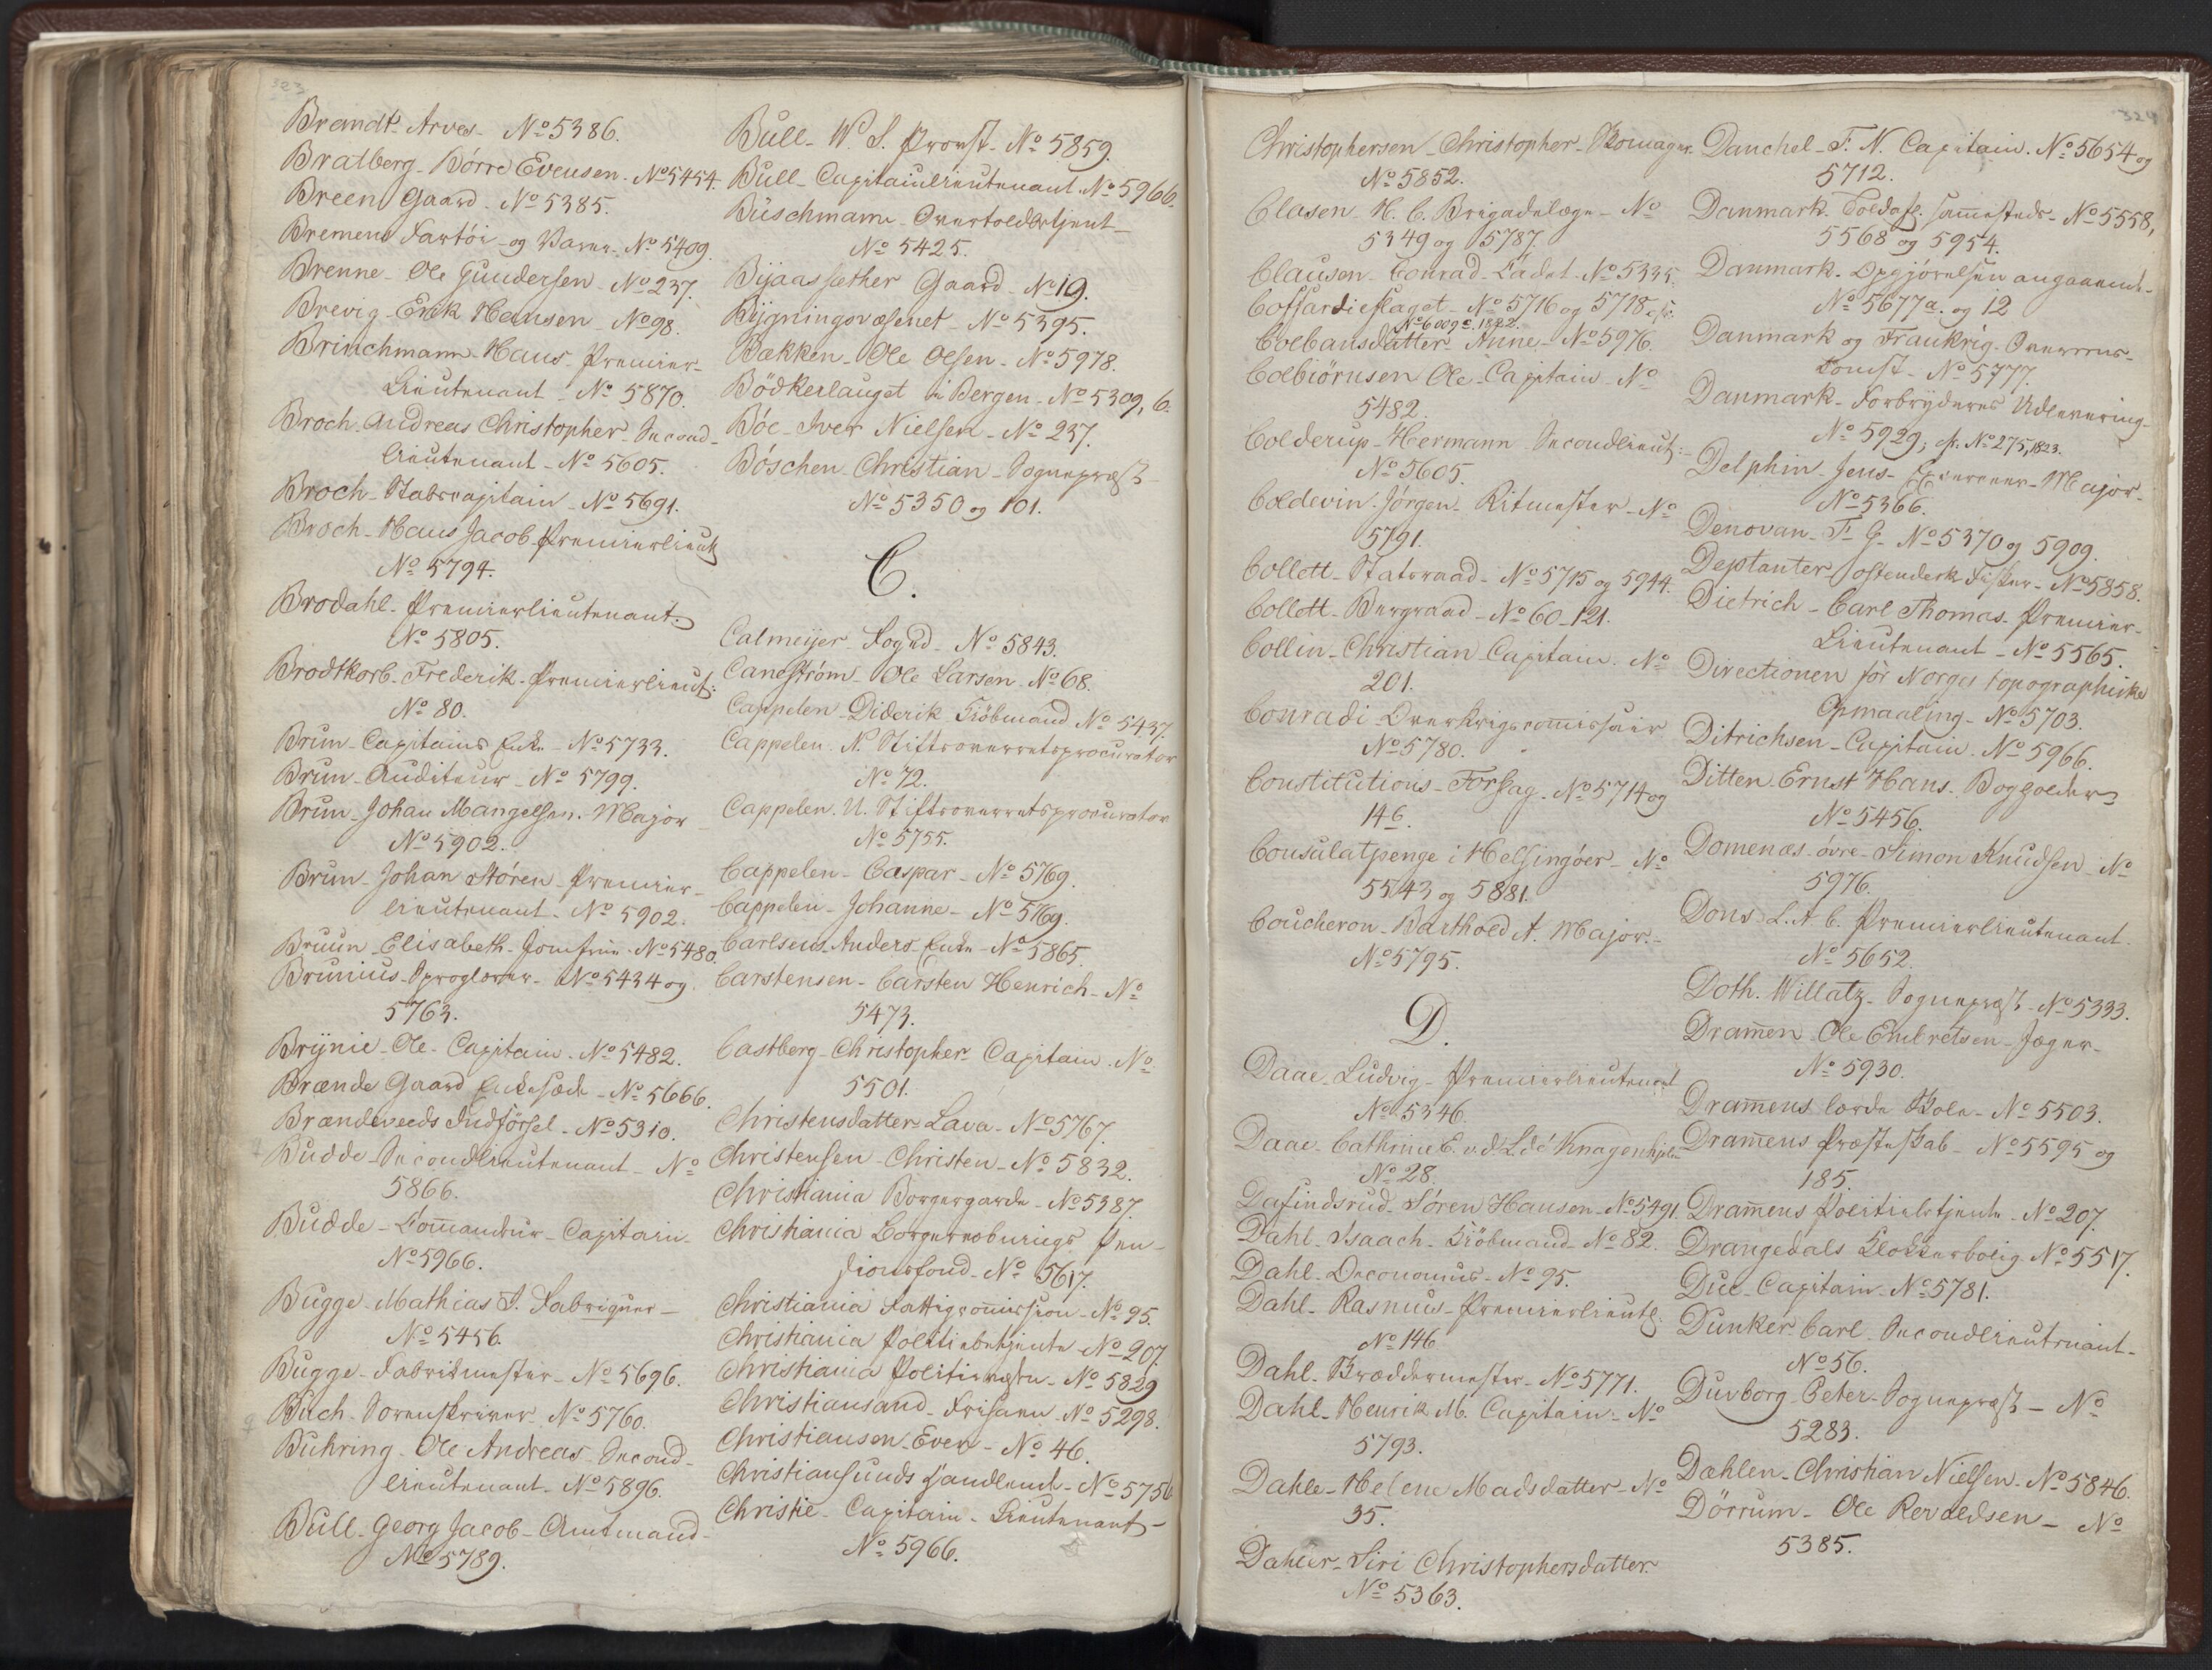 323
Brandt's Arves - No 5386.
Bratberg - Börre Evensen - No 5454.
Breen Gaard - No 5385.
Bremens Fartöi og Varer - No 5409.
Brenne - Ole Gundersen - No 237.
Brevig - Erik Hansen - No 98.
Brinchmann - Hans - Premier-
Lieutenant - No 5870.
Broch - Andreas Christopher - Second-
lieutenant - No 5605.
Broch - Stabscapitain - No 5691.
Broch - Hans Jacob - Premierlieut:
No 5794.
Brodahl - Premierlieutenant -
No 5805.
Brodtkorb - Frederik - Premierlieut:
No 80.
Brun - Capitains Enke - No 5733.
Brun - Auditeur - No 5799.
Brun - Johan Mangelsen - Major
No 5902.
Brun - Johan Stören - Premier-
lieutenant - No 5902.
Bruun - Elisabeth - Jomfrue - No 5480.
Brunius - Sproglærer - No 5434 og
5763.
Brynie - Ole - Capitain - No 5482.
Brænde Gaard Enkesæde - No 5666.
Brændeveeds Indförsel - No 5310.
Budde - Secondlieutenant - No
5866.
Budde - Com̄andeur-Capitain -
No 5966.
Bugge - Mathias S. Fabriquer -
No 5456.
Bugge - Fabrikmester - No 5696.
Buch - Sorenskriver - No 5760.
Buhring - Ole Andreas - Second-
lieutenant - No 5896.
Bull - Georg Jacob - Amtmand -
No 5789.
Bull - W. S. Provst - No 5859.
Bull - Capitainlieutenant - No 5966.
Buschmann - Overtoldbetjent -
No 5425.
Byaassæther Gaard - No 19.
Bygningsvæsenet - No 5395.
Bækken - Ole Olsen - No 5978.
Bödkerlauget i Bergen - No 5309, 6.
Böe - Iver Nielsen - No 237.
Böschen - Christian - Sognepræst -
No 5350 og 101.
C.
Calmeyer - Foged - No 5843.
Caneström - Ole Larsen - No 68.
Cappelen - Diderik - Kiöbmand No 5437.
Cappelen - N. Stiftsoverretsprocurator
No 72.
Cappelen - U. Stiftsoverretsprocurator
No 5755.
Cappelen - Caspar - No 5769.
Cappelen - Johanne - No 5769.
Carlsens Anders Enke - No 5865.
Carstensen - Carsten Henrich - No
5473.
Castberg - Christopher - Capitain - No
5501.
Christensdatter - Lava - No 5767.
Christensen - Christen - No 5832.
Christiania Borgergarde - No 5387.
Christiania Borgervæbnings Pen-
sionsfond - No 5617.
Christiania Fattigcom̄ission - No 95.
Christiania Politiebetjente No 207.
Christiania Politievæsen - No 5829
Christiansand - No 5298.
Christiansen - Even - No 46.
Christiansunds Handlende - No 5756
Christie - Capitain-Lieutenant -
No 5966.
324
Christophersen - Christopher - Skomager -
No 5852.
Clasen - H. C. Brigadelæge - No
5349 og 5787.
Clausen - Conrad - Cadet - No 5335.
Coffardieflaget - No 5716 og 5718 cfr:
No 6009 c. 1822.
Colbansdatter - Anne - No 5976.
Colbiörnsen Ole - Capitain - No
5482.
Colderup - Hermann - Secondlieut: -
No 5605.
Coldevin - Jörgen - Ritmester - No
5791.
Collett - Statsraad - No 5715 og 5944.
Collett - Bergraad - No 60 - 121.
Collin - Christian - Capitain - No
201.
Conradi - Overkrigscom̄issair
No 5780.
Constitutions-Forslag - No 5714 og
146.
Consulatpenge i Helsingöer - No
5543 og 5881.
Coucheron - Barthold A. Major -
No 5795.
D.
Daae - Ludvig - Premierlieutenant
No 5346.
Daae - Cathrine E. v. d. L. d. Knagenhjelm
No 28.
Dafindsrud - Sören Hansen - No 5491.
Dahl - Isaach - Kiöbmand - No 82.
Dahl - Oeconomus - No 95.
Dahl - Rasmus - Premierlieut:
No 146.
Dahl - Skræddermester - No 5771.
Dahl - Henrik M. Capitain - No
5793.
Dahle - Helene Madsdatter - No
35.
Dahler - Siri Christophersdatter
No 5363.
Danchel - F. N. Capitain - No 5654 og
5712.
Danmark - Toldafg. sam̄esteds - No 5558,
5568 og 5954.
Danmark - Opgjörelsen angaaende -
No 5677 a. og 12
Danmark og Frankrig - Overens-
komst - No 5777.
Danmark - Forbryderes Udlevering -
No 5929; cfr: No 275, 1823.
Delphin - Jens - Exerceer-Major -
No 5366.
Denovan - F. G. - No 5370 og 5909.
Deplanter - ostendersk Fisker - No 5858.
Dietrich - Carl Thomas - Premier-
Lieutenant - No 5565.
Directionen for Norges topographiske
Opmaaling - No 5703.
Ditrichsen - Capitain - No 5966.
Ditten - Ernst Hans - Bogholder
No 5456.
Domenæs - övre - Simon Knudsen - No
5976.
Dons - L. A. C. Premierlieutenant -
No 5652.
Doth - Willatz - Sognepræst - No 5333.
Dram̄en - Ole Embretsen - Jæger -
No 5930.
Dram̄ens lærde Skole - No 5503.
Dram̄ens Præsteskab - No 5595 og
185.
Dram̄ens Politiebetjente - No 207.
Drangedals Klokkerbolig - No 5517.
Due - Capitain - No 5781.
Dunker - Carl - Secondlieutenant -
No 56.
Duvborg - Peter - Sognepræst - No
5283.
Dæhlen - Christian Nielsen - No 5846.
Dörrum - Ole Revoldsen - No
5385.